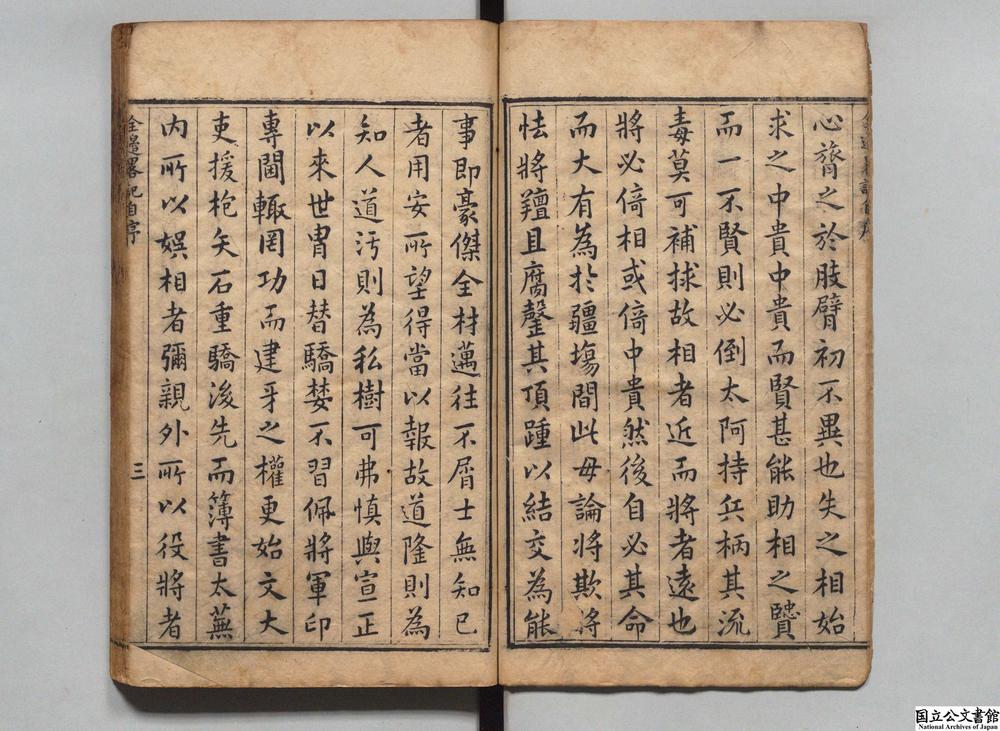 心膂之於肢臂初不異也失之相始
求之中貴中貴而賢甚能助相之賢
而一不賢則必倒太阿持兵柄其流
毒莫可補捄故相者近而將者遠也
將必倚相或倚中貴然後自必其命
而大有為於疆埸間此毋論將欺將
怯將羶且腐聱其頂踵以結交為能
事即豪傑全材邁往不屑士無知已
者用安所望得當以報故道隆則為
知人道污則為私樹可弗慎與宣正
以來世冑日替驕婪不習佩將軍印
專閫輙罔功而建牙之權更始文大
吏援枹矢石重驕浚先而簿書太蕪
內所以娛相者彌親外所以役將者
全邊畧記自序
三
国立公文書館
National Archives of Japan